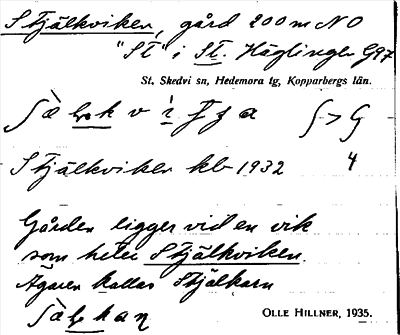 Stjälkviken, gård 200 m NO
"St" i St. Häglingen G97
St. Skedvi sn, Hedemora tg, Kopparbergs län.
Stjälkviken kb 1932 4
Gården ligger vid en vik
som heter Stjälkviken.
Ägaren kallas Stjälkarn
OLLE HILLNER, 1935.